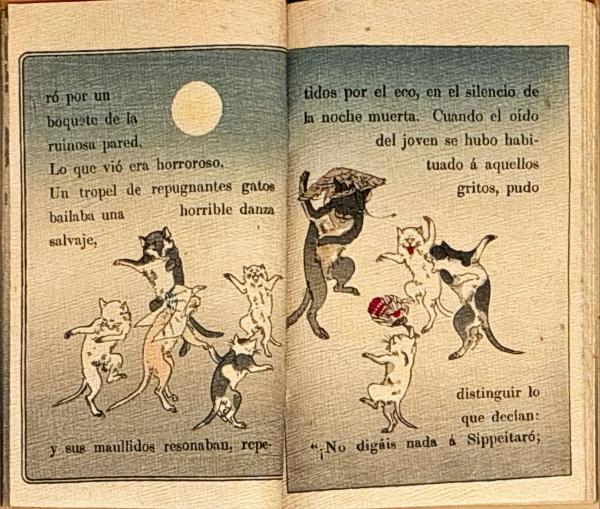 ró por un
boquete de la
ruinosa pared.
Lo que vió era horroroso.
Un tropel de repugnantes gatos
bailaba una horrible danza
salvaje,
y sus maullidos resonaban, repe-
tidos por el eco, en el silencio de
la noche muerta. Cuando el oído
del joven se hubo habi-
tuado á aquellos
gritos, pudo
distinguir lo
que decían:
“¡No digáis nada á Sippeitaró;